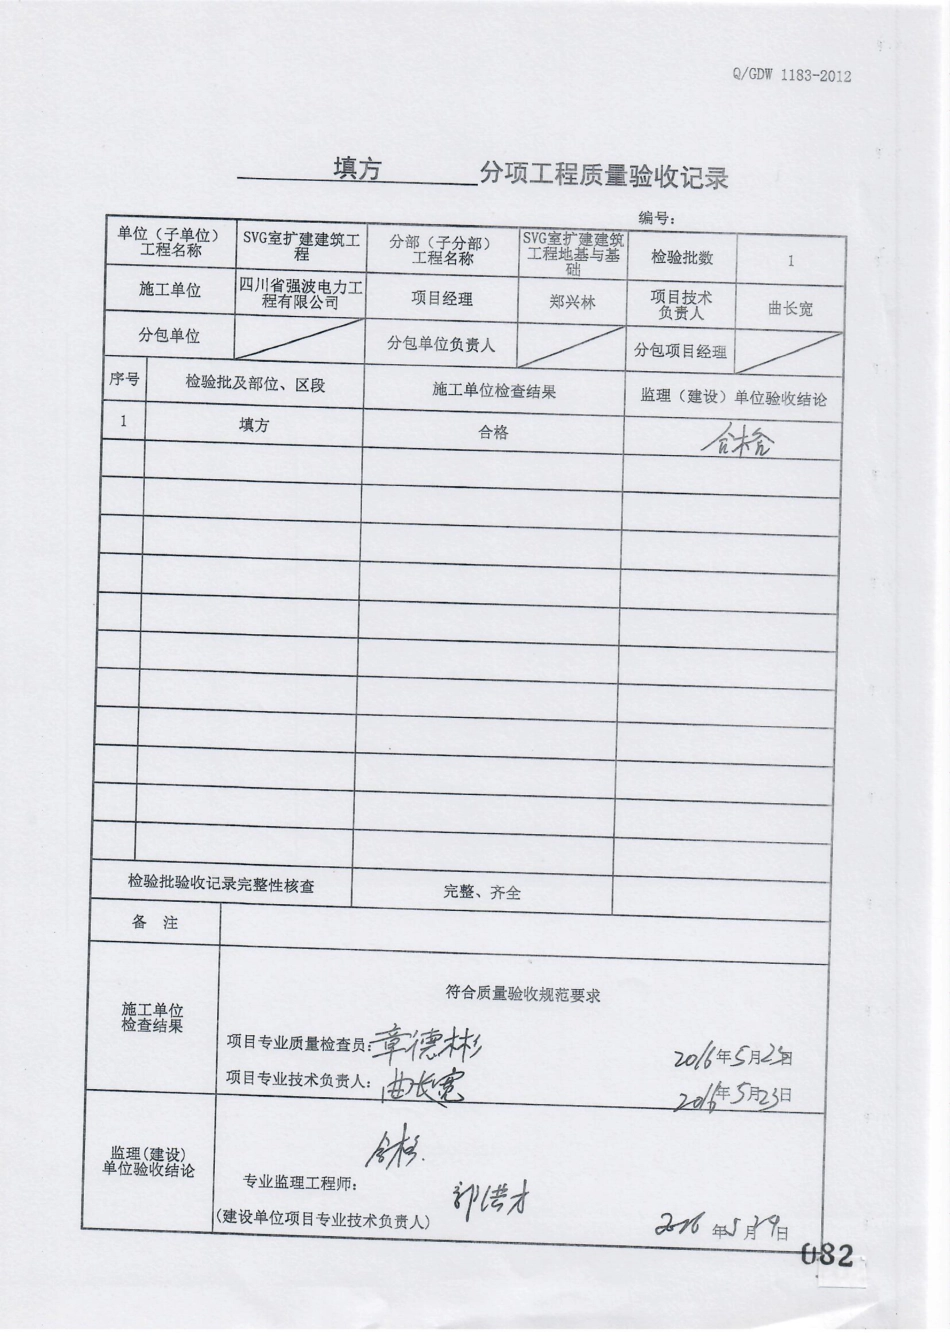 Q/GDW 1183-2012
填方 分项工程质量验收记录
编号:
单位（子单位）
工程名称
SVG室扩建建筑工
程
分部（子分部）
工程名称
SVG室扩建建筑
工程地基与基
础
检验批数
1
施工单位
四川省强波电力工
程有限公司
项目经理
郑兴林
项目技术
负责人
曲长宽
分包单位
分包单位负责人
分包项目经理
序号
检验批及部位、区段
施工单位检查结果
监理（建设）单位验收结论
1
填方
合格
合格
检验批验收记录完整性核查
完整、齐全
备 注
施工单位
检查结果
符合质量验收规范要求
项目专业质量检查员:章德彬
2016年5月23日
项目专业技术负责人:曲长宽
2016年5月23日
监理(建设)
单位验收结论
合格.
专业监理工程师:
郭洪才
(建设单位项目专业技术负责人)
2016年5月29日
082